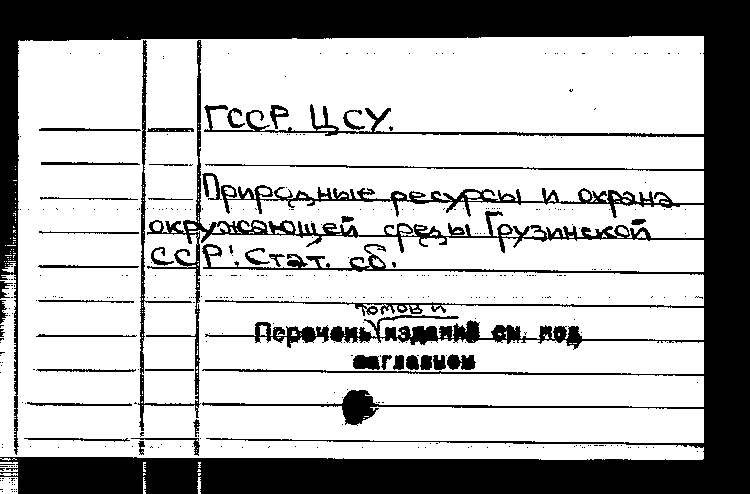 ГССР. ЦСУ.
Природные ресурсы и охрана
окружающей среды Грузинской
ССР: Стат. сб.
томов и
Перечень изданий см. под
заглавием